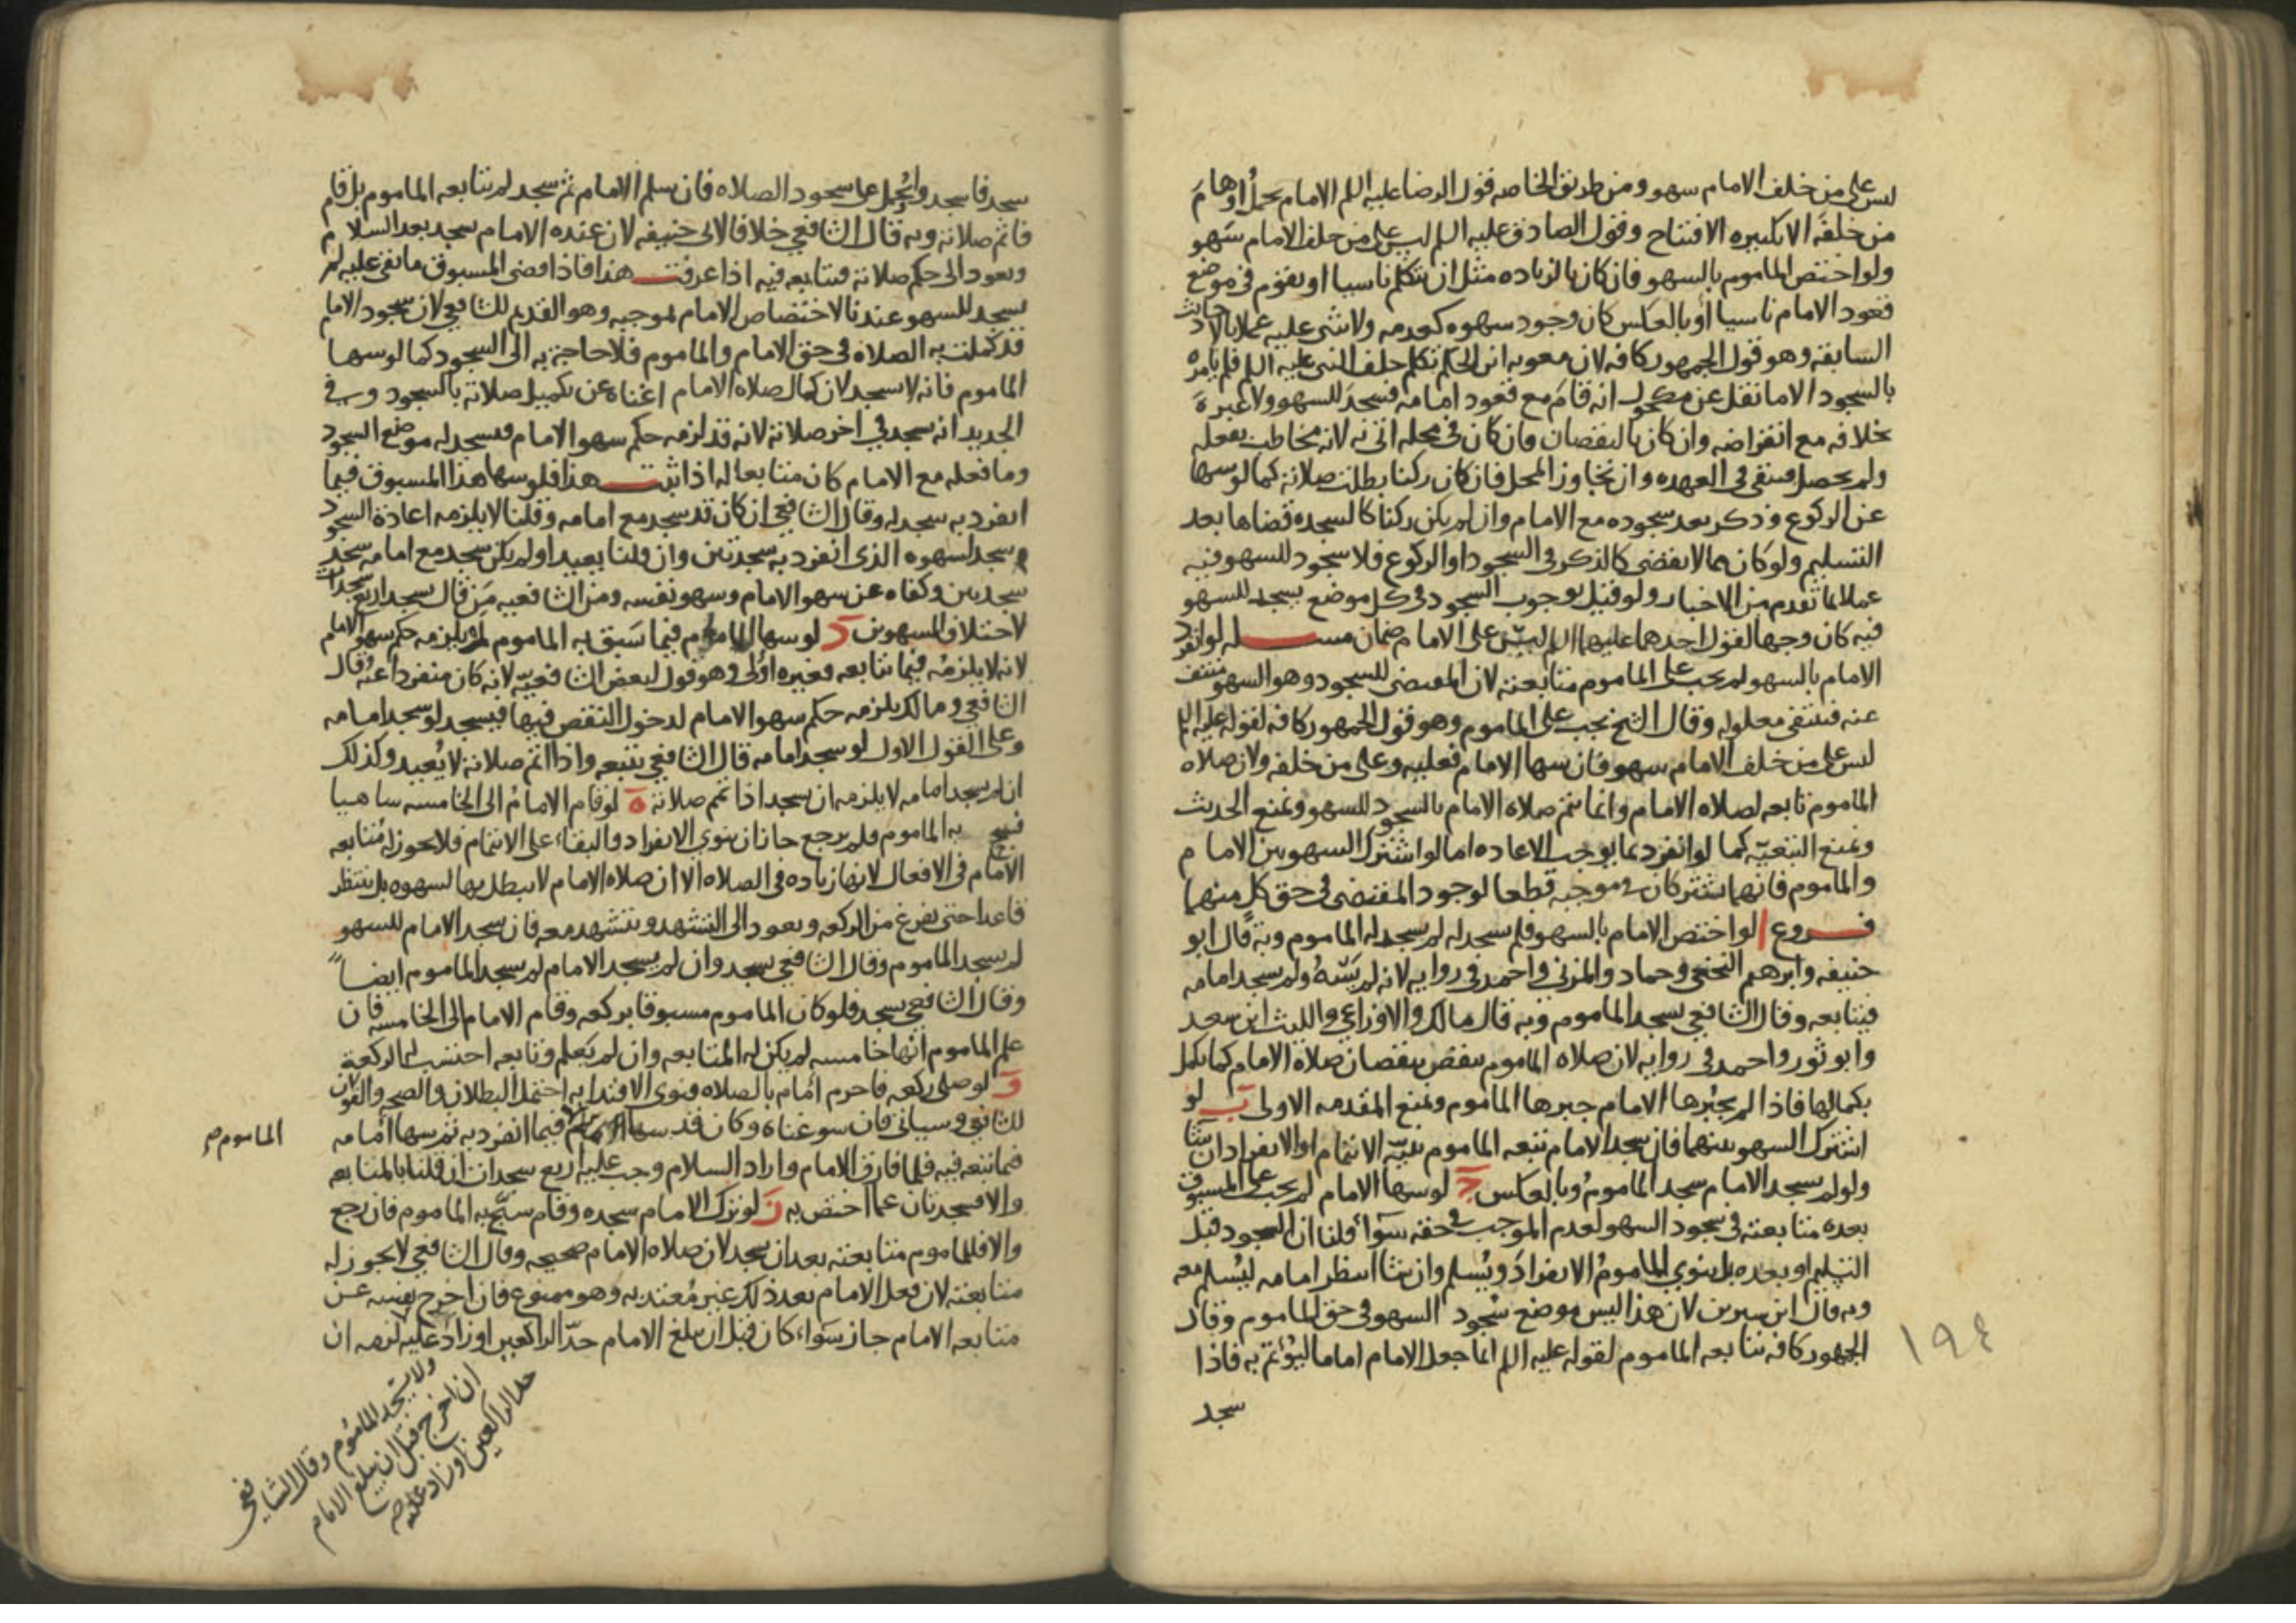 ليس على من خلف الامام سهو ومن طريق الخاصه قول الرضا عليه السلم الامام يحمل اوهام
من خلفه الا تكبيره الافتتاح وقول الصادق عليه السلم ليس على من خلف الامام سهو
ولو اختص الماموم بالسهو فان كان بالزياده مثل ان يتكلم ناسيا او يقوم في موضع
قعود الامام ناسيا او بالعكس كان وجود سهوه كعدمه ولا شي عليه عملا بالاحاديث
السابقه وهو قول الجمهور كافه لان معويه ابن الحكم تكلم خلف النبي عليه السلم فلم يامره
بالسجود الا ما نقل عن مكحول انه قام مع قعود امامه فسجد للسهو ولا عبرة
بخلافه مع انقراضه وان كان بالنقصان فان كان في محله اتى به لانه مخاطب بفعله
ولم يحصل فيبقى في العهده وان تجاوز المحل فان كان ركنا بطلت صلاته كما لو سها
عن الركوع وذكر بعد سجوده مع الامام وان لم يكن ركنا كالسجده قضاها بعد
التسليم ولو كان مما لا يقضى كالذكر في السجود او الركوع فلا سجود للسهو فيه
عملا بما تقدم من الاخبار ولو قيل بوجوب السجود في كل موضع يسجد للسهو
فيه كان وجها لقول احدهما عليهما السلم ليس على الامام ضمان مسله لو انفرد
الامام بالسهو لم يجب على الماموم متابعته لان المقتضى للسجود وهو السهو منتف
عنه فينتفى معلوله وقال الشيخ يجب على الماموم وهو قول الجمهور كافه لقوله عليه السلم
ليس على من خلف الامام سهو فان سها الامام فعليه وعلى من خلفه ولان صلاه
الماموم تابعه لصلاه الامام وانما تتم صلاه الامام بالسجود للسهو ونمنع الحديث
ونمنع التبعيه كما لو انفرد بما يوجب الاعاده اما لو اشترك السهو بين الامام
والماموم فانهما يشتركان في موجبه قطعا لوجود المقتضى في حق كل منهما
فروع ا لو اختص الامام بالسهو فلم يسجد له لم يسجد له الماموم وبه قال ابو
حنيفه وابرهيم النخعي وحماد والمزني واحمد في روايه لانه لم يسه ولم يسجد امامه
فيتابعه وقال الشافعي يسجد الماموم وبه قال مالك والاوزاعي والليث ابن سعد
وابو ثور واحمد في روايه لان صلاه الماموم تنقص بنقصان صلاه الامام كما تكمل
بكمالها فاذا لم يجبرها الامام جبرها الماموم ونمنع المقدمه الاولى ب لو
اشترك السهو بينهما فان سجد الامام تبعه الماموم بنيه الائتمام او الانفراد ان شا
ولو لم يسجد الامام سجد الماموم وبالعكس ج لو سها الامام لم يجب على المسبوق
بعده متابعته في سجود السهو لعدم الموجب في حقه سوا قلنا ان السجود قبل
التسليم او بعده بل ينوي الماموم الانفراد ويسلم وان شا انتظر امامه ليسلم معه
وبه قال ابن سيرين لان هذا ليس موضع سجود السهو في حق الماموم وقال
الجمهور كافه يتابعه الماموم لقوله عليه السلم انما جعل الامام اماما ليؤتم به فاذا
سجد
١٩٤
سجد فاسجدوا ويحمل على سجود الصلاه فان سلم الامام ثم سجد لم يتابعه الماموم بل قام
فاتم صلاته وبه قال الشافعي خلافا لابي حنيفه لان عنده الامام يسجد بعد السلام
ويعود الى حكم صلاته فيتابعه فيه اذا عرفت هذا فاذا قضى المسبوق ما بقى عليه لم
يسجد للسهو عندنا لاختصاص الامام بموجبه وهو القديم للشافعي لان سجود الامام
قد كملت به الصلاه في حق الامام والماموم فلا حاجة به الى السجود كما لو سها
الماموم فانه لا يسجد لان كمال صلاه الامام اغناه عن تكميل صلاته بالسجود وفي
الجديد انه يسجد في اخر صلاته لانه قد لزمه حكم سهو الامام فيسجد له موضع السجود
وما فعله مع الامام كان متابعا له اذا ثبت هذا فلو سها هذا المسبوق فيما
انفرد به سجد له وقال الشافعي ان كان قد سجد مع امامه وقلنا لا يلزمه اعادة السجود
سجد لسهوه الذى انفرد به سجدتين وان قلنا يعيد او لم يكن سجد مع امامه سجد
سجدتين وكفاه عن سهو الامام وسهو نفسه ومن الشافعيه من قال يسجد اربع سجدات
لاختلاف السهوين د لو سها الامام فيما سبق به الماموم لم يلزمه حكم سهو الامام
لانه لا يلزمه فيما يتابعه فغيره اولى وهو قول لبعض الشافعيه لانه كان منفردا عنه وقال
الشافعي ومالك يلزمه حكم سهو الامام لدخول النقص فيها فيسجد لو سجد امامه
وعلى القول الاول لو سجد امامه قال الشافعي يتبعه واذا اتم صلاته لا يعيد وكذلك
ان لم يسجد امامه لا يلزمه ان يسجد اذا تمم صلاته ه لو قام الامام الى الخامسه ساهيا
فسبح به الماموم فلم يرجع جاز ان ينوي الانفراد والبقاء على الائتمام فلا يجوز له متابعه
الامام في الافعال لانها زياده في الصلاه الا ان صلاه الامام لا تبطل بها لسهوه بل ينتظر
قاعدا حتى يفرغ من الركعه ويعود الى التشهد ويتشهد معه فان سجد الامام للسهو
لم يسجد الماموم وقال الشافعي يسجد وان لم يسجد الامام لم يسجد الماموم ايضا
وقال الشافعي يسجد فلو كان الماموم مسبوقا بركعه وقام الامام الى الخامسه فان
علم الماموم انها خامسه لم يكن له المتابعه وان لم يعلم وتابعه احتسب له الركعة
و لو صلى ركعه فاحرم امام بالصلاه فنوى الاقتدا به احتمل البطلان والصحه والقولان
للشافعي وسياتي فان سوغناه وكان قد سها فيما انفرد به ثم سها امامه
الماموم صح
فيما تبعه فيه فلما فارق الامام واراد السلام وجب عليه اربع سجدات ان قلنا بالمتابعه
والا فسجدتان عما اختص به ز لو ترك الامام سجده وقام سبح به الماموم فان رجع
والا فللماموم متابعته بعد ان يسجد لان صلاه الامام صحيحه وقال الشافعي لا يجوز له
متابعته لان فعل الامام بعد ذلك غير معتد به وهو ممنوع فان اخرج نفسه عن
متابعه الامام جاز سواء كان قبل ان يبلغ الامام حد الراكعين او زاد عليه لزمه ان
ولا يسجد الماموم وقال الشافعي
ان اخرج قبل ان يبلغ الامام
حد الراكعين او زاد عليه صح